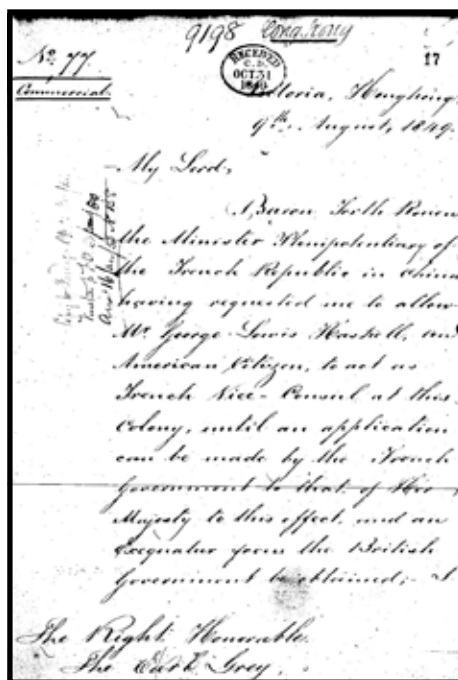 9198 Hong Kong
No. 77
17
Commercial
RECEIVED
C.D.
OCT. 31
Victoria, Hongkong,
9th. August, 1849.
My Lord,
Baron Forth Rouen
the Minister Plenipotentiary of
the French Republic in China
having requested me to allow
Mr. George Lewis Haskell, an
American Citizen, to act as
French Vice-Consul at this
Colony, until an application
can be made by the French
Government to that of Her
Majesty to this effect, and an
Exequatur from the British
Government be obtained; I
The Right Honorable
The Earl Grey,